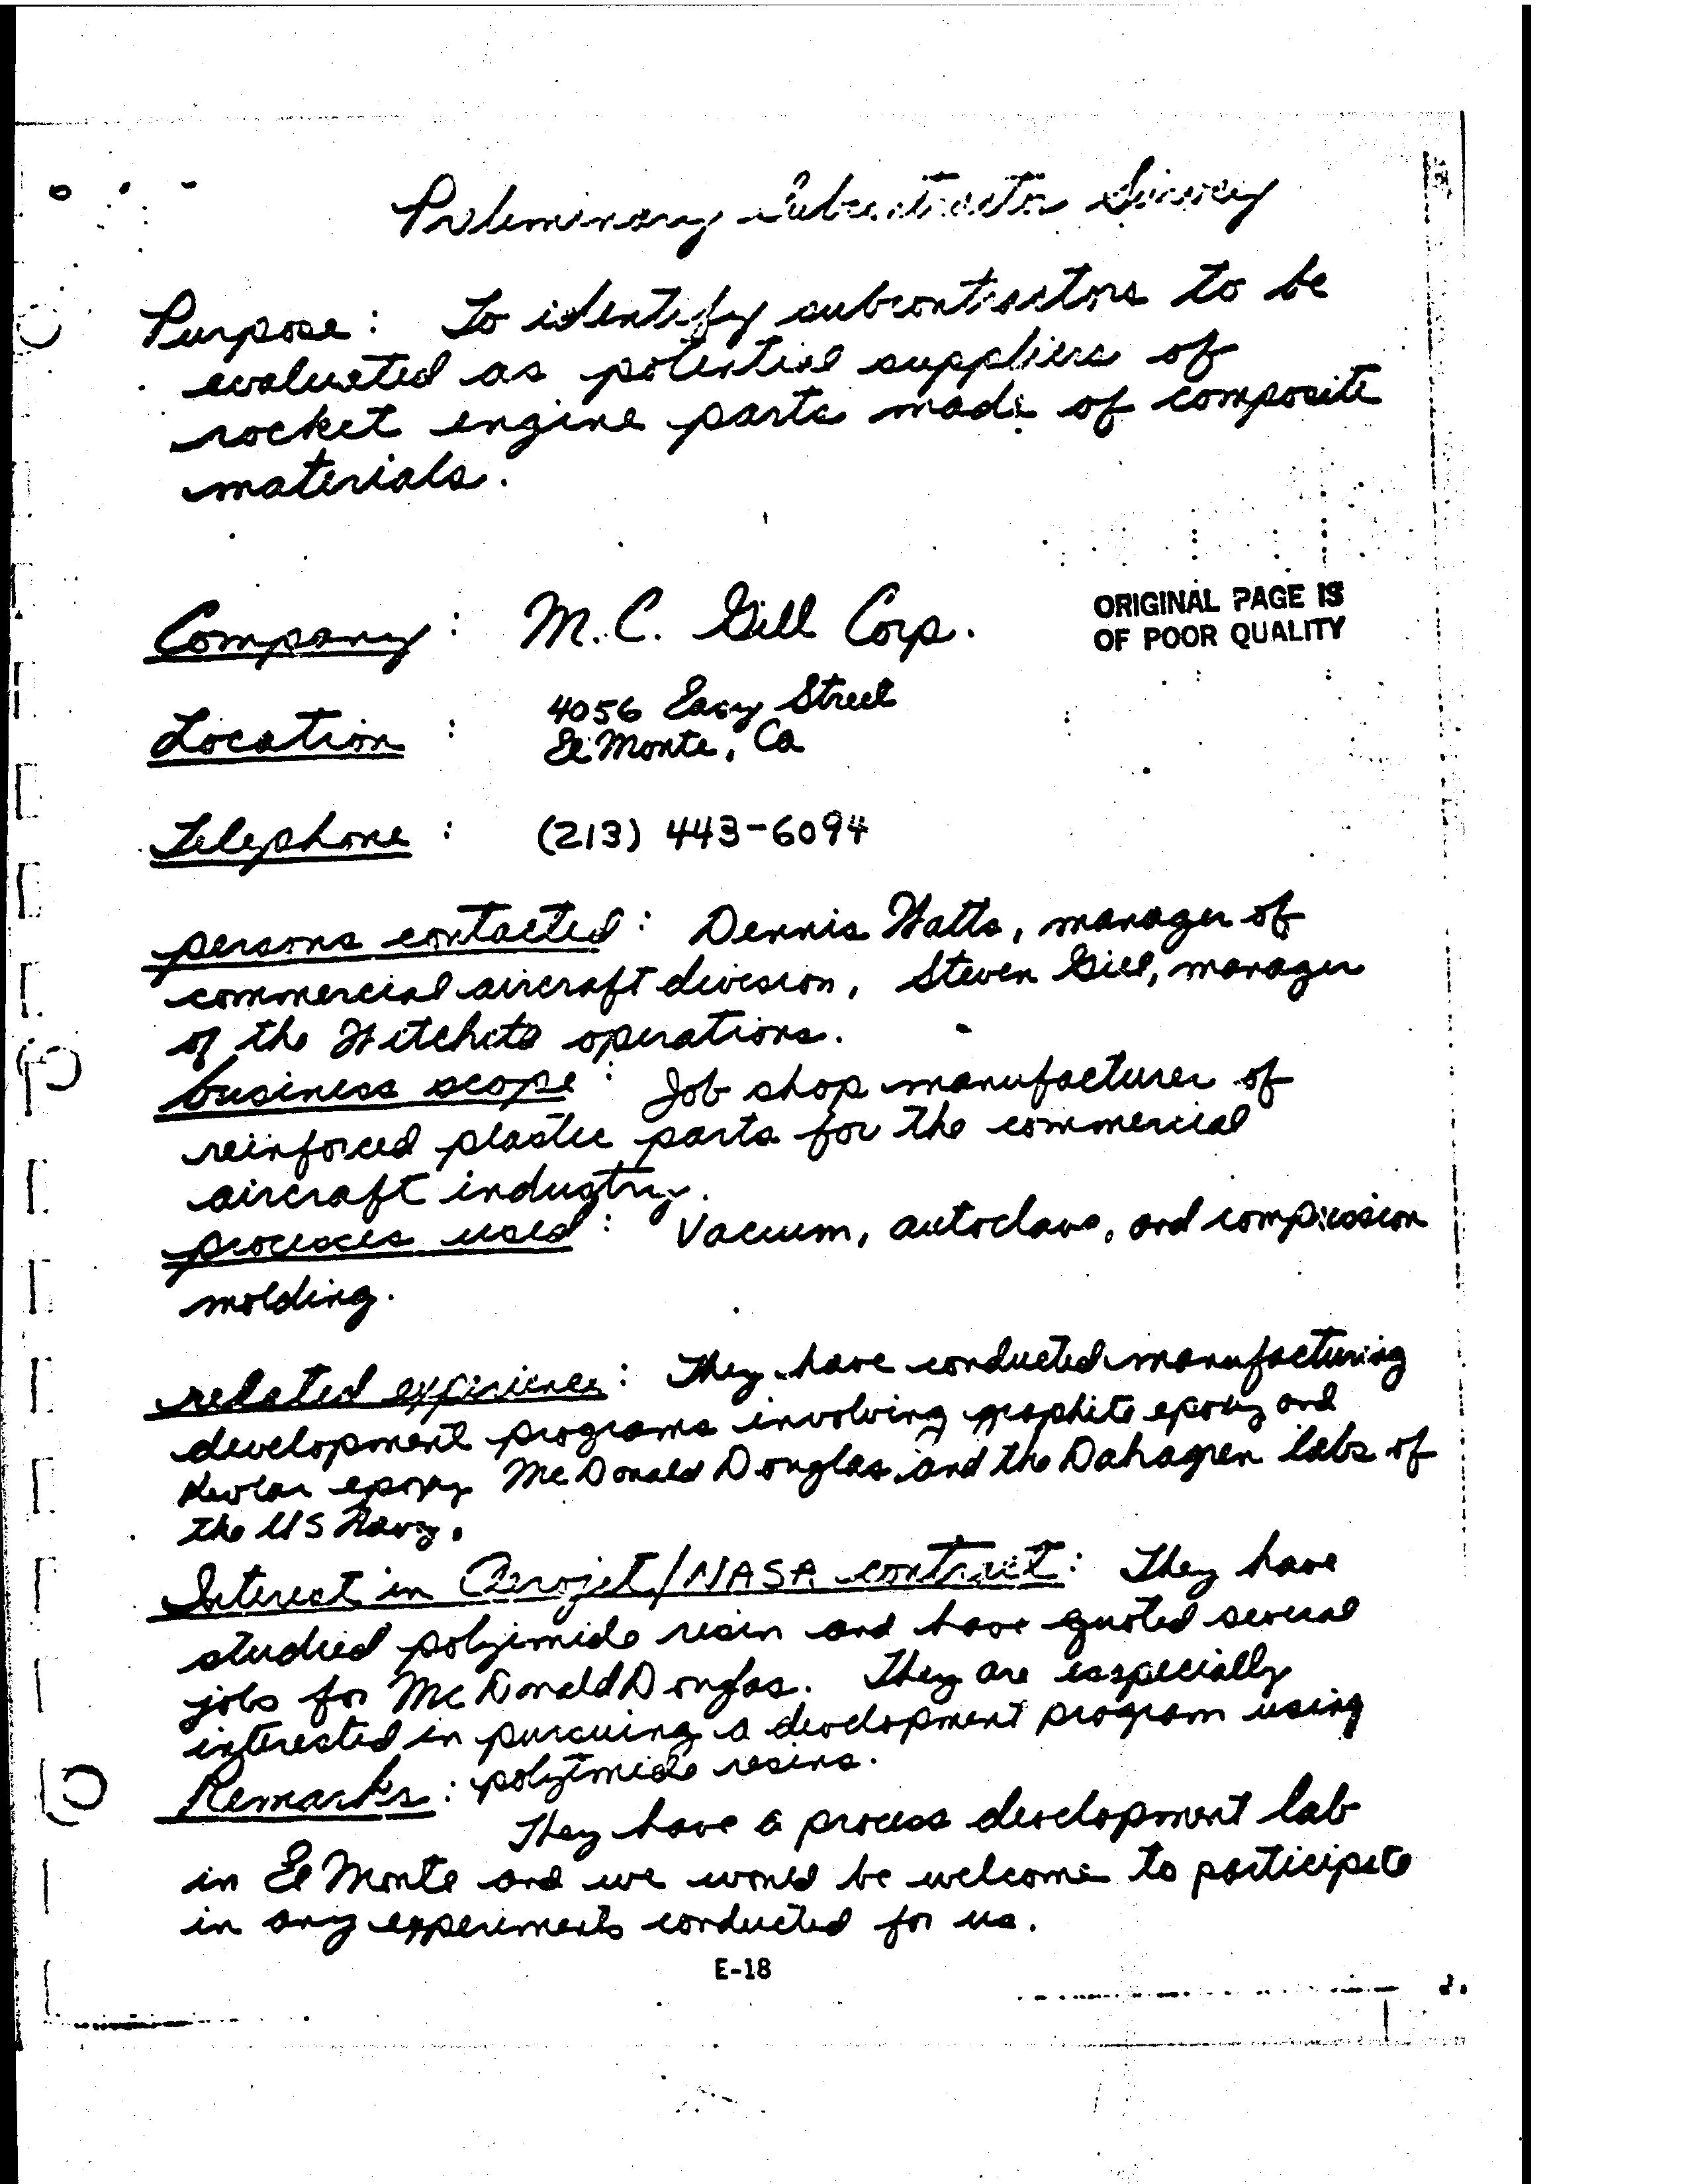 Preliminary Subcontractor Survey
Purpose: To identify subcontractors to be
evaluated as potential suppliers of
rocket engine parts made of composite
materials.
Company: M.C. Gill Corp.
ORIGINAL PAGE IS
OF POOR QUALITY
Location: 4056 Easy Street
El Monte, Ca
Telephone: (213) 443-6094
persons contacted: Dennis Watts, manager of
commercial aircraft division, Steven Gill, manager
of the Witchita operations.
business scope: Job shop manufacturer of
reinforced plastic parts for the commercial
aircraft industry.
processes used: Vacuum, autoclave, and compression
molding.
related experience: They have conducted manufacturing
development programs involving graphite epoxy and
Kevlar epoxy McDonald Douglas and the Dahagren labs of
the US Navy.
Interest in Aerojet/NASA contract: They have
studied polyimide resin and have quoted several
jobs for McDonald Douglas. They are esspecially
interested in pursuing a development program using
polyimide resins.
Remarks:
They have a process development lab
in El Monte and we would be welcome to participate
in any experiments conducted for us.
E-18